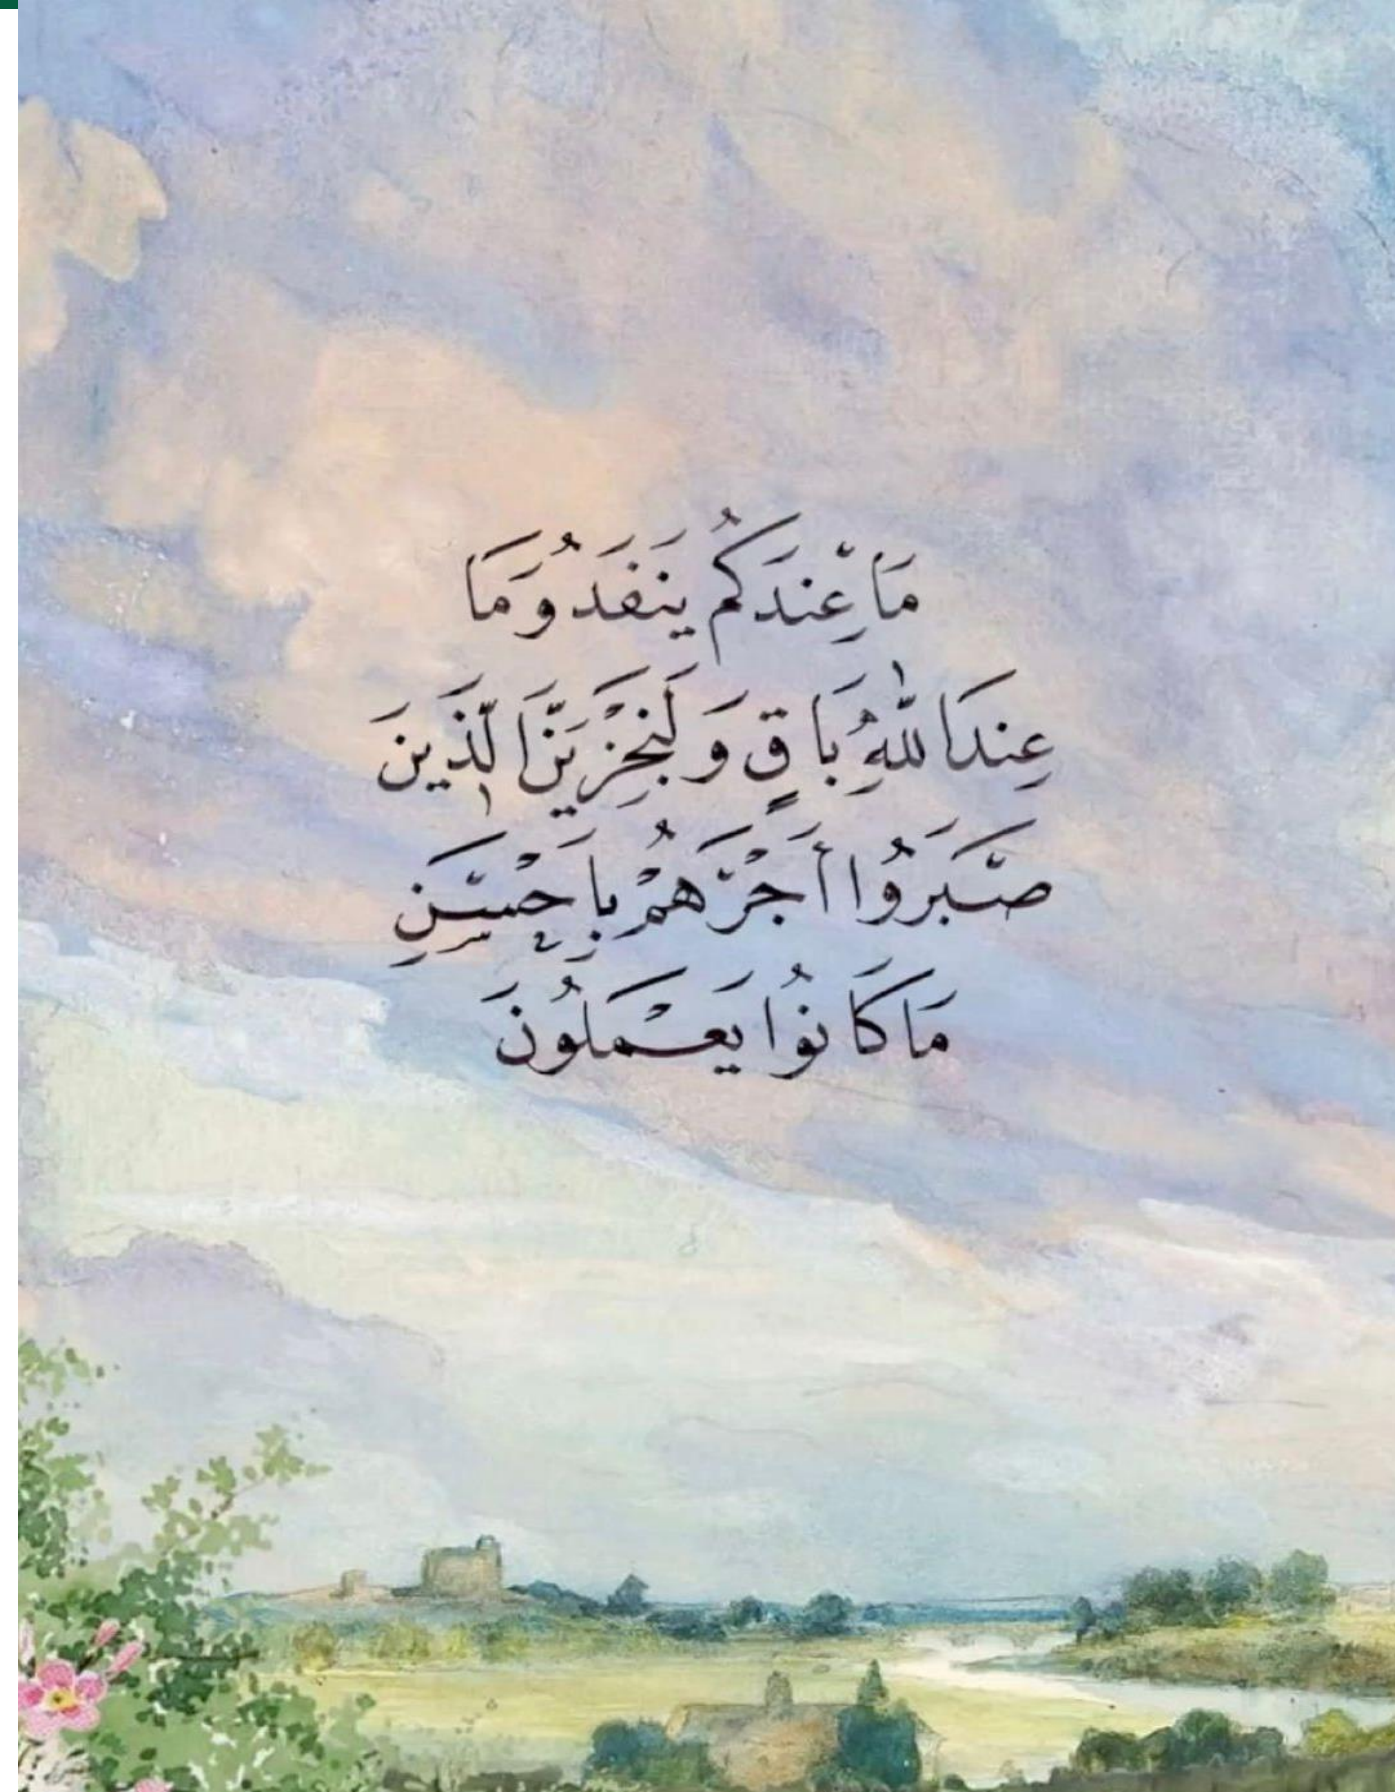 مَا عِندَكُمْ يَنفَدُ وَمَا
عِندَ اللّٰهِ بَاقٍ وَلَنَجْزِيَنَّ الَّذِينَ
صَبَرُوا أَجْرَهُمْ بِأَحْسَنِ
مَا كَانُوا يَعْمَلُونَ